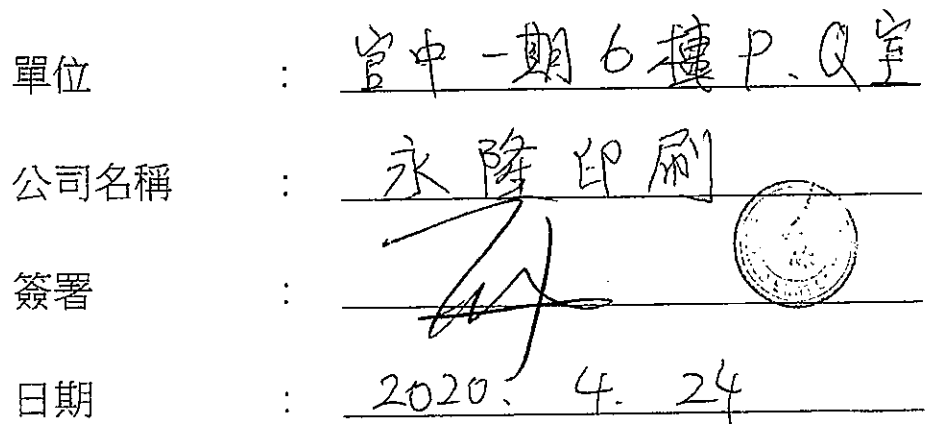 單位 : 官中一期6樓P.Q室
公司名稱 : 永隆印刷
簽署 :
日期 : 2020. 4. 24